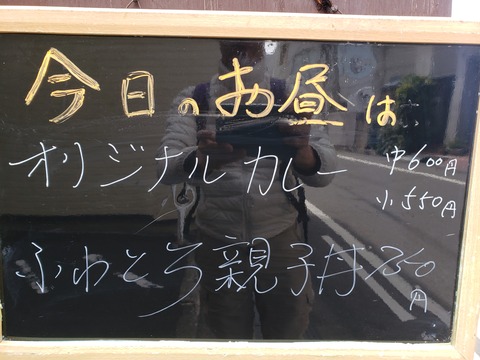 今日のお昼は…
オリジナルカレー 中600円
小550円
ふわとろ親子丼 750円